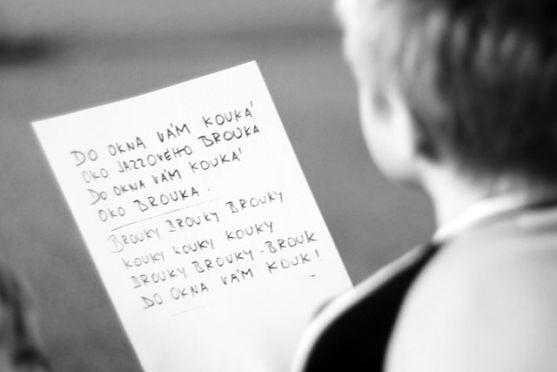 DO OKNA VÁM KOUKÁ
OKO JAZZOVÉHO BROUKA
DO OKNA VÁM KOUKÁ
OKO BROUKA.
BROUKY BROUKY BROUKY
KOUKY KOUKY KOUKY
BROUKY BROUKY-BROUK
DO OKNA VÁM KOUK!